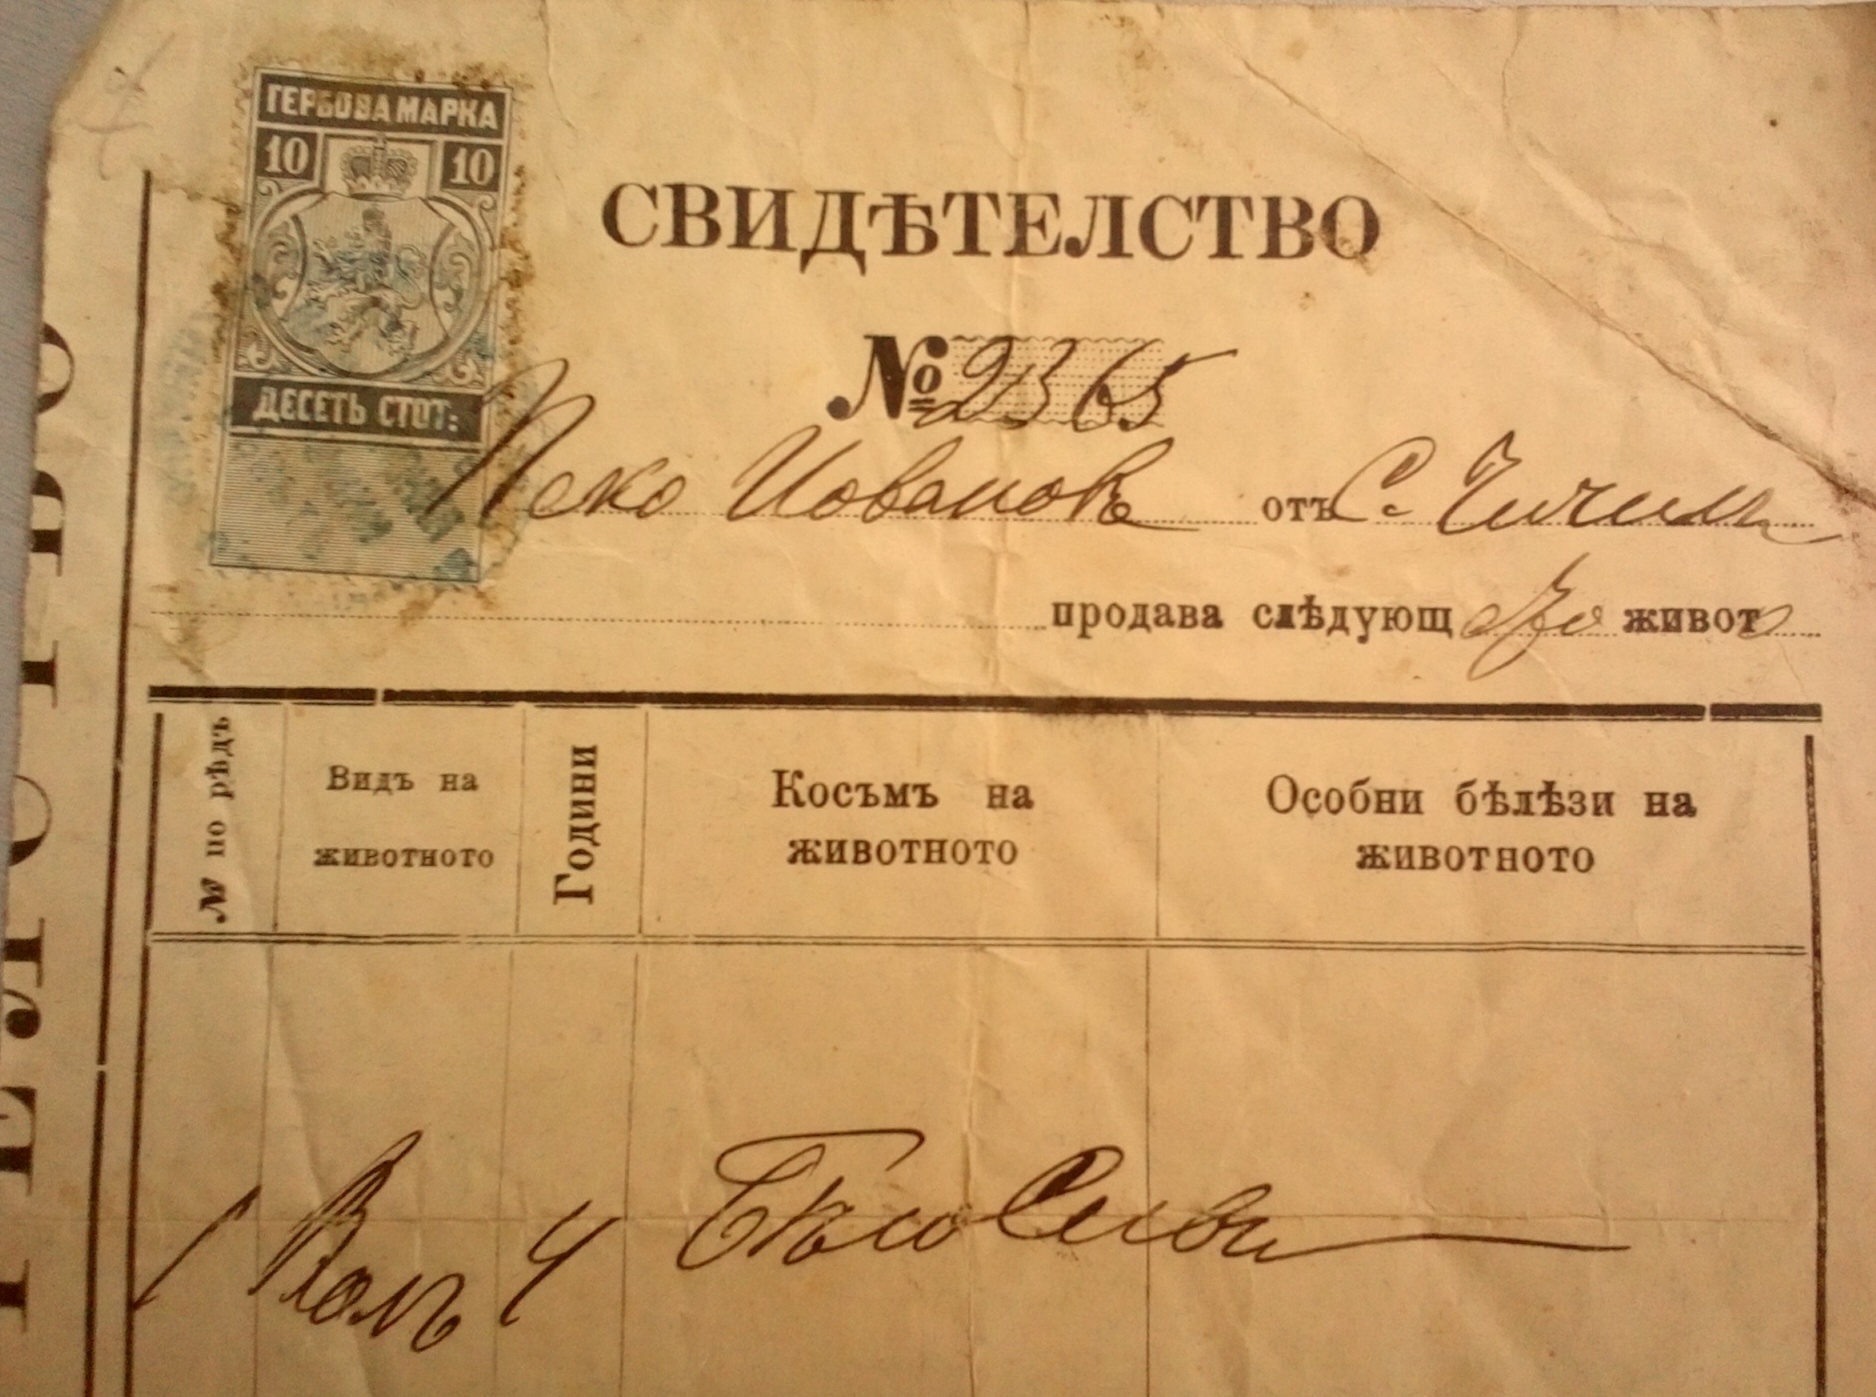 ГЕРБОВА МАРКА
10 10
ДЕСЕТЬ СТОТ:
СВИДѢТЕЛСТВО
№ 2365
Пеко Иовановъ отъ С. Чичилъ
продава слѣдующ ото живот о
№ по рѣдъ
Видъ на животното
Години
Косъмъ на животното
Особни бѣлѣзи на животното
1 Волъ 4 Бѣло Сивъ